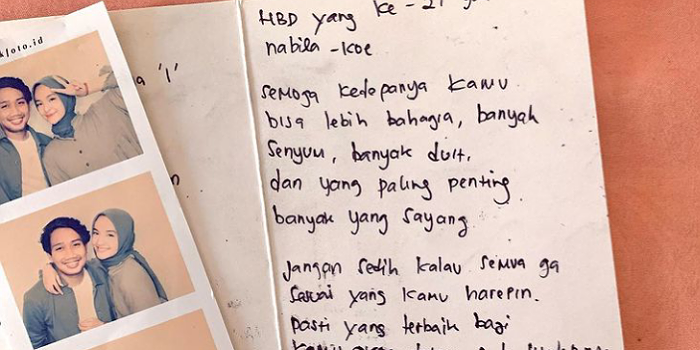 kfoto.id
a '1'
n
HBD yang ke - 21
nabila - koe
semoga kedepanya kamu
bisa lebih bahagia, banyak
senyum, banyak duit,
dan yang paling penting
banyak yang sayang
jangan sedih kalau semua ga
sesuai yang kamu harepin.
pasti yang terbaik bagi